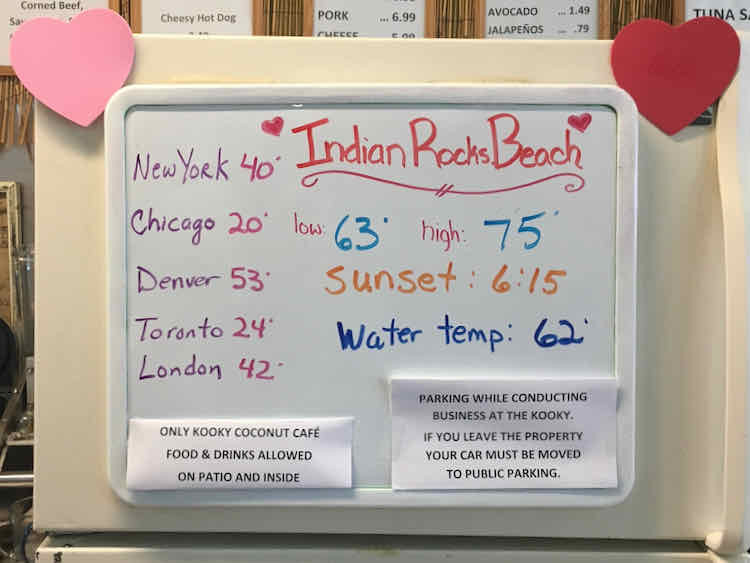 Corned Beef,
Cheesy Hot Dog
PORK ... 6.99
CHEESE 5.99
AVOCADO ... 1.49
JALAPEÑOS ... .79
TUNA SA
Indian Rocks Beach
New York 40°
Chicago 20°
Denver 53°
Toronto 24°
London 42°
low: 63° high: 75°
Sunset: 6:15
Water temp: 62°
ONLY KOOKY COCONUT CAFÉ
FOOD & DRINKS ALLOWED
ON PATIO AND INSIDE
PARKING WHILE CONDUCTING
BUSINESS AT THE KOOKY.
IF YOU LEAVE THE PROPERTY
YOUR CAR MUST BE MOVED
TO PUBLIC PARKING.